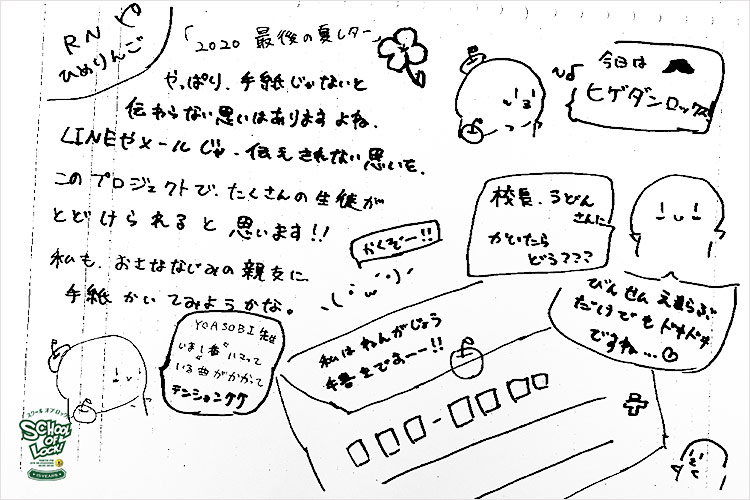 RN
ひめりんご
「2020 最後の夏レター」
やっぱり、手紙じゃないと
伝わらない思いはありますよね、
LINEやメールじゃ、伝えきれない思いを、
このプロジェクトで、たくさんの生徒が
とどけられると思います!!
私も、おさななじみの親友に
手紙かいてみようかな。
今日は
ヒゲダンロックス
校長、うどん
さんに
かいたら
どう???
びんせんえらぶ
だけでもドキドキ
ですね…
かくぞー!!
YOASOBI先生
いま1番ハマって
いる曲がかかって
テンションタタ
私はねんがじょう
手書きですーー!!
スクール オブ ロック
SCHOOL
OF
LOCK!
15 YEARS